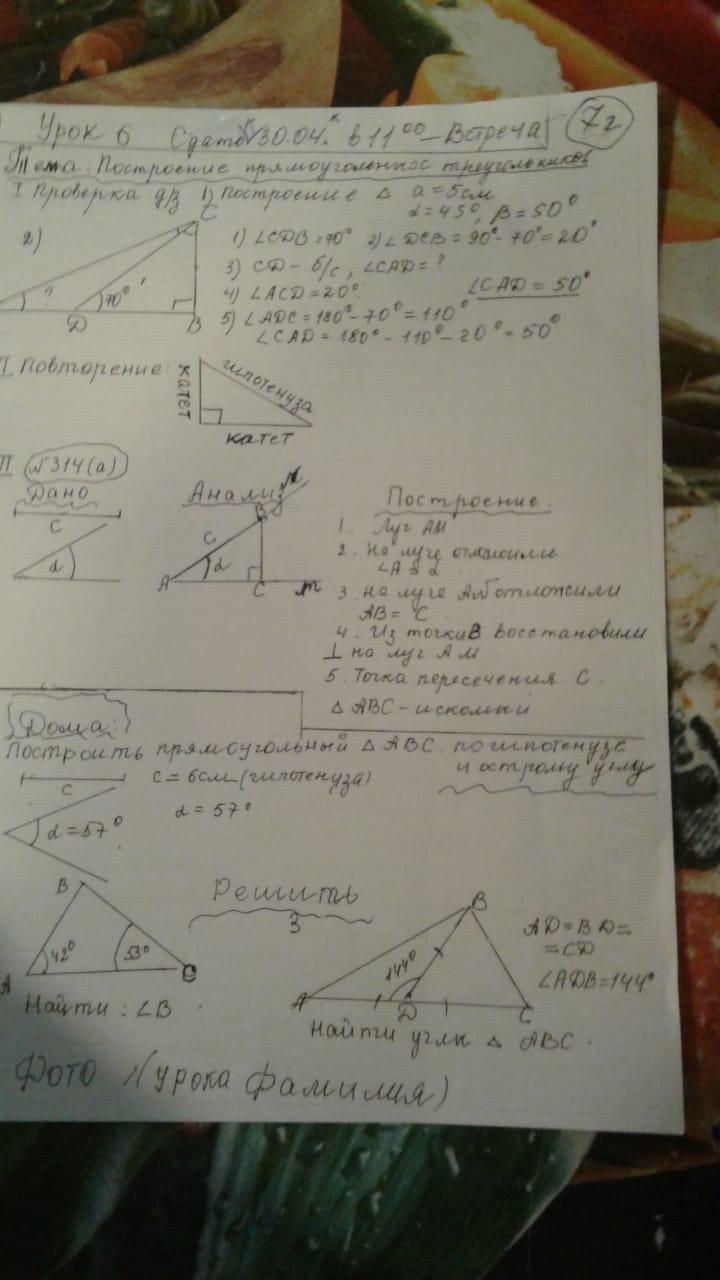 Урок 6 Сдать 30.04. в 11 00 - Встреча 7г
Тема: Построение прямоугольных треугольников
I. Проверка д/з 1) построение △ a = 5см
α = 45°, β = 50°
2)
C
?
70°
D
B
1) ∠CDB = 70° 2) ∠DCB = 90° - 70° = 20°
3) CD - б/с, ∠CAD = ?
4) ∠ACD = 20° ∠CAD = 50°
5) ∠ADC = 180° - 70° = 110°
∠CAD = 180° - 110° - 20° = 50°
II Повторение:
катет
гипотенуза
катет
№314(а)
Дано
C
α
Анализ
B
C
α
A
C
m
Построение.
1. Луч AM
2. На луче отложили
∠A = α
3. на луче AN отложили
AB = C
4. Из точки B восстановили
⊥ на луч AM
5. Точка пересечения C.
△ ABC - искомый
Дома:
Построить прямоугольный △ ABC по гипотенузе
и острому углу
C
c = 6см (гипотенуза)
α = 57°
α = 57°
Решить
3
B
42°
53°
A
C
Найти: ∠B
B
144°
A
D
C
AD = BD =
= CD
∠ADB = 144°
Найти углы △ ABC.
Фото (урока фамилия)